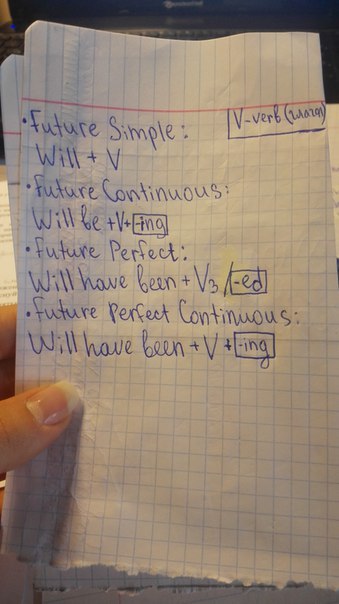 • Future Simple:
V-verb (глагол)
Will + V
• Future Continuous:
Will be +V+ -ing
• Future Perfect:
Will have been + V3 / -ed
• Future Perfect Continuous:
Will have been + V + -ing